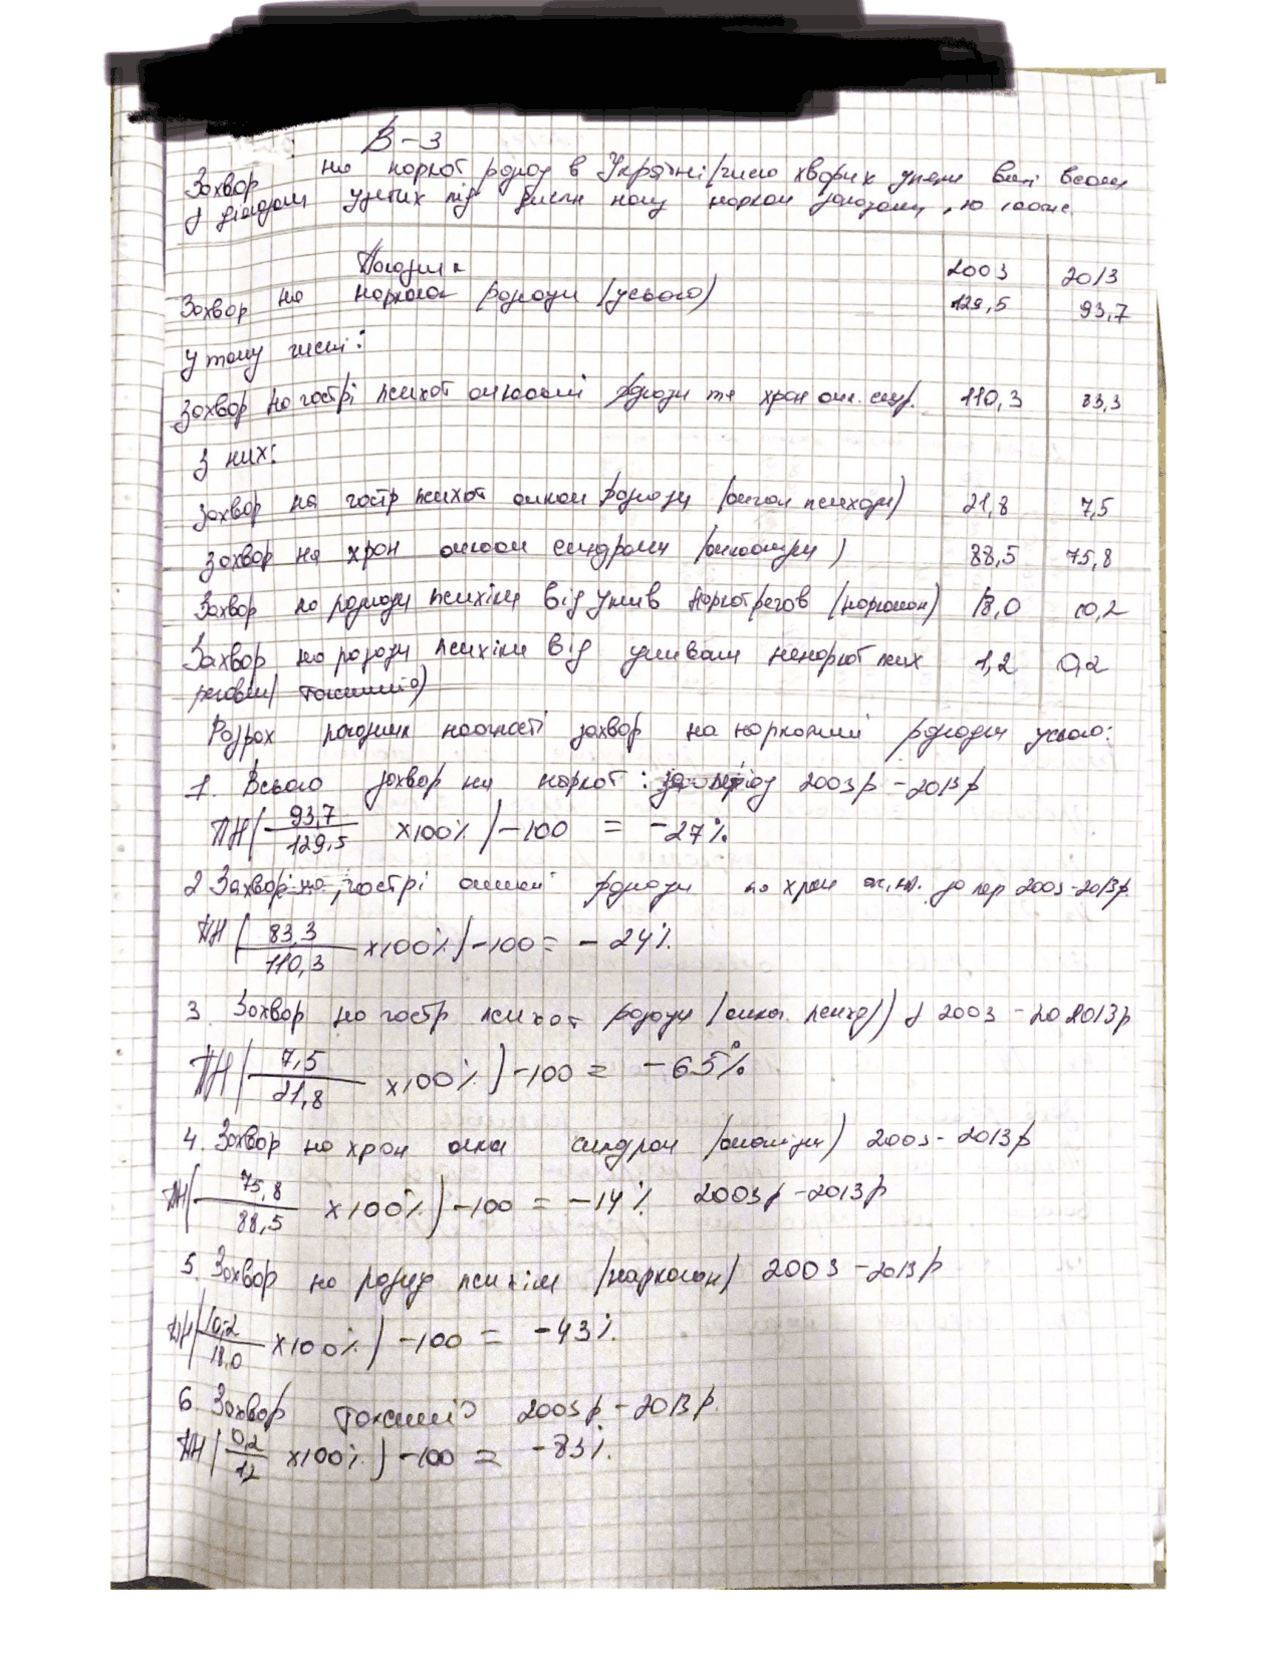 В-3
Захвор на наркот розлад в Україні /число хворих
у діагозом узятих під нагл
Показник 2003 2013
Захвор на нарколог розлади /усього) 129,5 93,7
у тому числі:
Захвор на гострі психот алкогольні розлади та хрон алк. синдр. 110,3 83,3
З них:
Захвор на гостр психот алкогол розлади /алкогол психози) 21,8 7,5
Захвор на хрон алкогол синдроми /алкоголізм) 88,5 75,8
Захвор на розлади психіки від ужив наркот речов /наркоман) 18,0 10,2
Захвор на розлади психіки від уживан ненаркот псих 1,2 0,2
речовин/ токсиманія)
Розрах показник наочності захвор на наркологічні розлади усього:
1. Всього захвор на наркот : за період 2003р - 2013р
ПН( 93,7
129,5 x100%)-100 = -27%
2 Захвор на гострі розлади та хрон 2003-2013р.
ПН( 83,3
110,3 x100%)-100 = -24%
3. Захвор на гостр психот розлади /алког. псих) у 2003 - 2013р
ПН( 7,5
21,8 x100%)-100 = -65%
4. Захвор на хрон алког синдром /алкоголізм) 2003-2013р
ПН( 75,8
88,5 x100%)-100 = -14% 2003р-2013р
5. Захвор на розлад психіки /наркоман) 2003-2013р
ПН( 10,2
18,0 x100%)-100 = -43%
6. Захвор токсиманія 2003р-2013р.
ПН( 0,2
1,2 x100%)-100 = -83%.